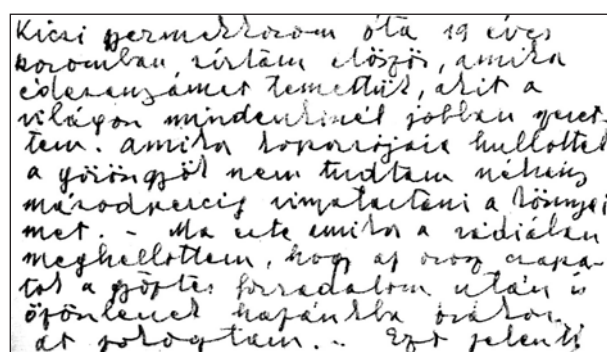 Kicsi gyermekkorom óta 19 éves
koromban sírtam először, amikor
édesanyámat temettük, akit a
világon mindenkinél jobban szeret-
tem. Amikor koporsójára hullottak
a göröngyök nem tudtam néhány
másodpercig visszatartani a könnyei
met. - Ma este amikor a rádióban
meghallottam, hogy az orosz csapa-
tok a győztes forradalom után is
özönlenek hazánkba órákon
át zokogtam. . Ezt jelenti